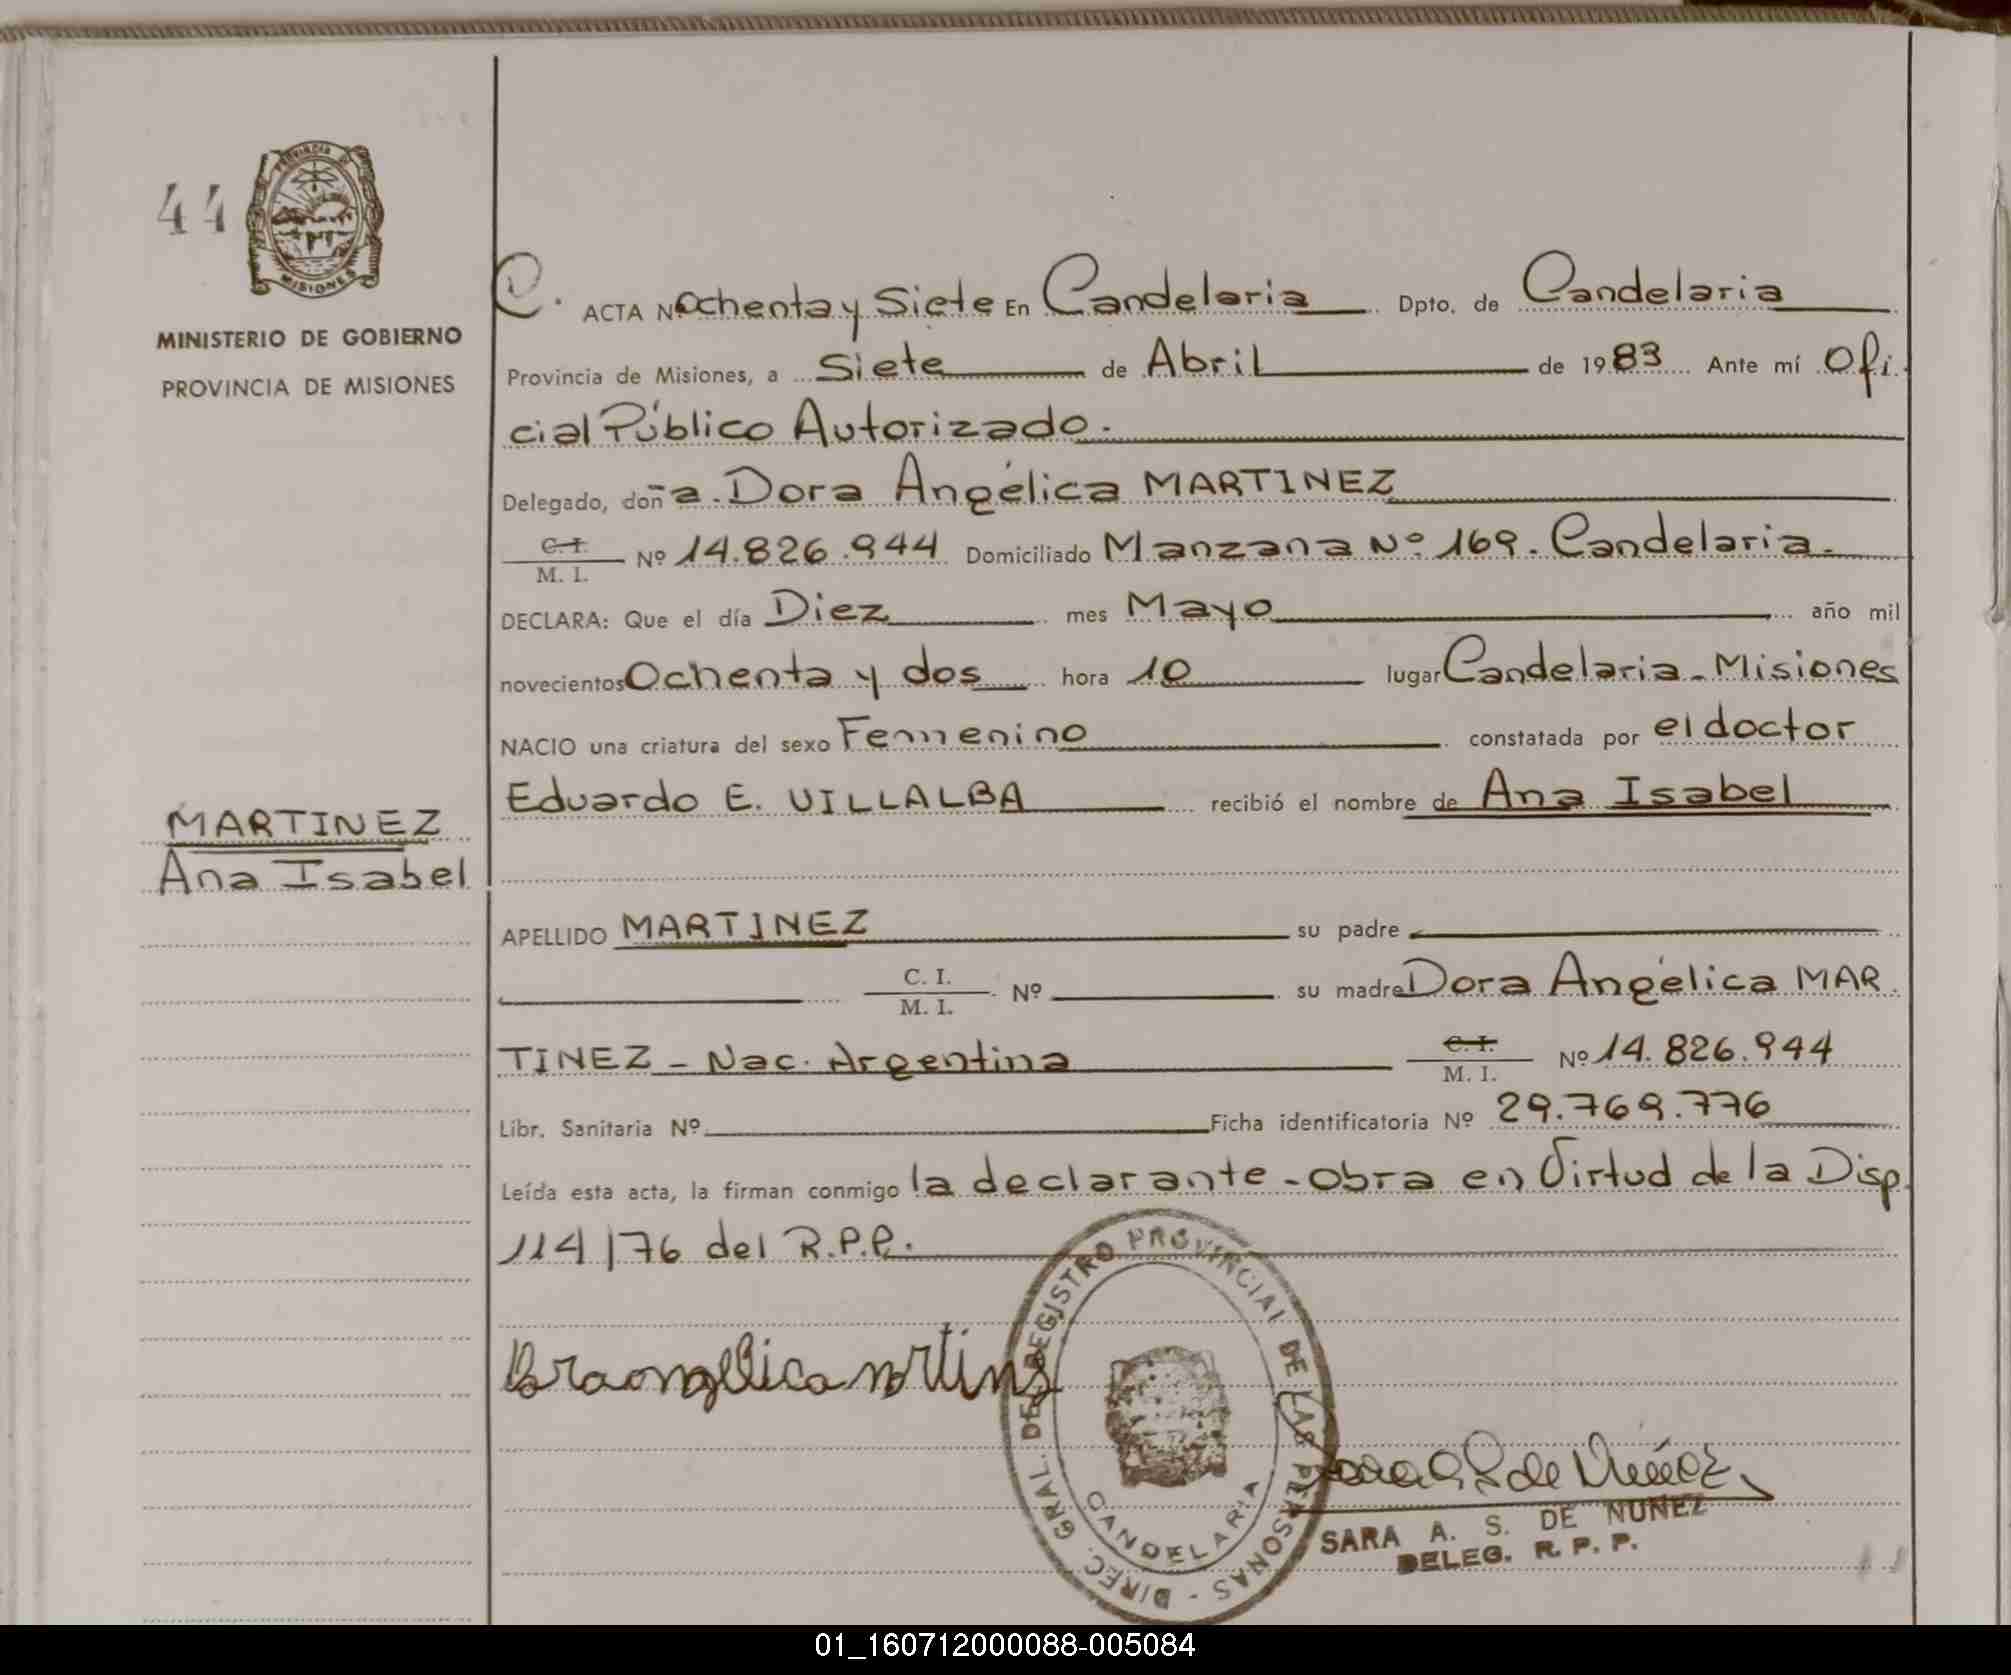 44
PROVINCIA DE
MISIONES
MINISTERIO DE GOBIERNO
PROVINCIA DE MISIONES
MARTINEZ
Ana Isabel
ACTA Nº Ochenta y Siete En Candelaria Dpto. de Candelaria
Provincia de Misiones, a Siete de Abril de 1983 Ante mí Ofi
cial Público Autorizado.
Delegado, doña. Dora Angélica MARTINEZ
C. I.
M. I. Nº 14.826.944 Domiciliado Manzana Nº 169. Candelaria.
DECLARA: Que el día Diez mes Mayo año mil
novecientos Ochenta y dos hora 10 lugar Candelaria - Misiones
NACIO una criatura del sexo Femenino constatada por el doctor
Eduardo E. VILLALBA recibió el nombre de Ana Isabel
APELLIDO MARTINEZ su padre
C. I.
M. I. Nº su madre Dora Angélica MAR
TINEZ - Nac. Argentina C. I.
M. I. Nº 14.826.944
Libr. Sanitaria Nº Ficha identificatoria Nº 29.769.776
Leída esta acta, la firman conmigo la declarante - obra en Virtud de la Disp.
114/76 del R.P.P.
DIREC. GRAL. DEL REGISTRO PROVINCIAL DE LAS PERSONAS -
CANDELARIA
SARA A. S. DE NUÑEZ
DELEG. R. P. P.
01_160712000088-005084